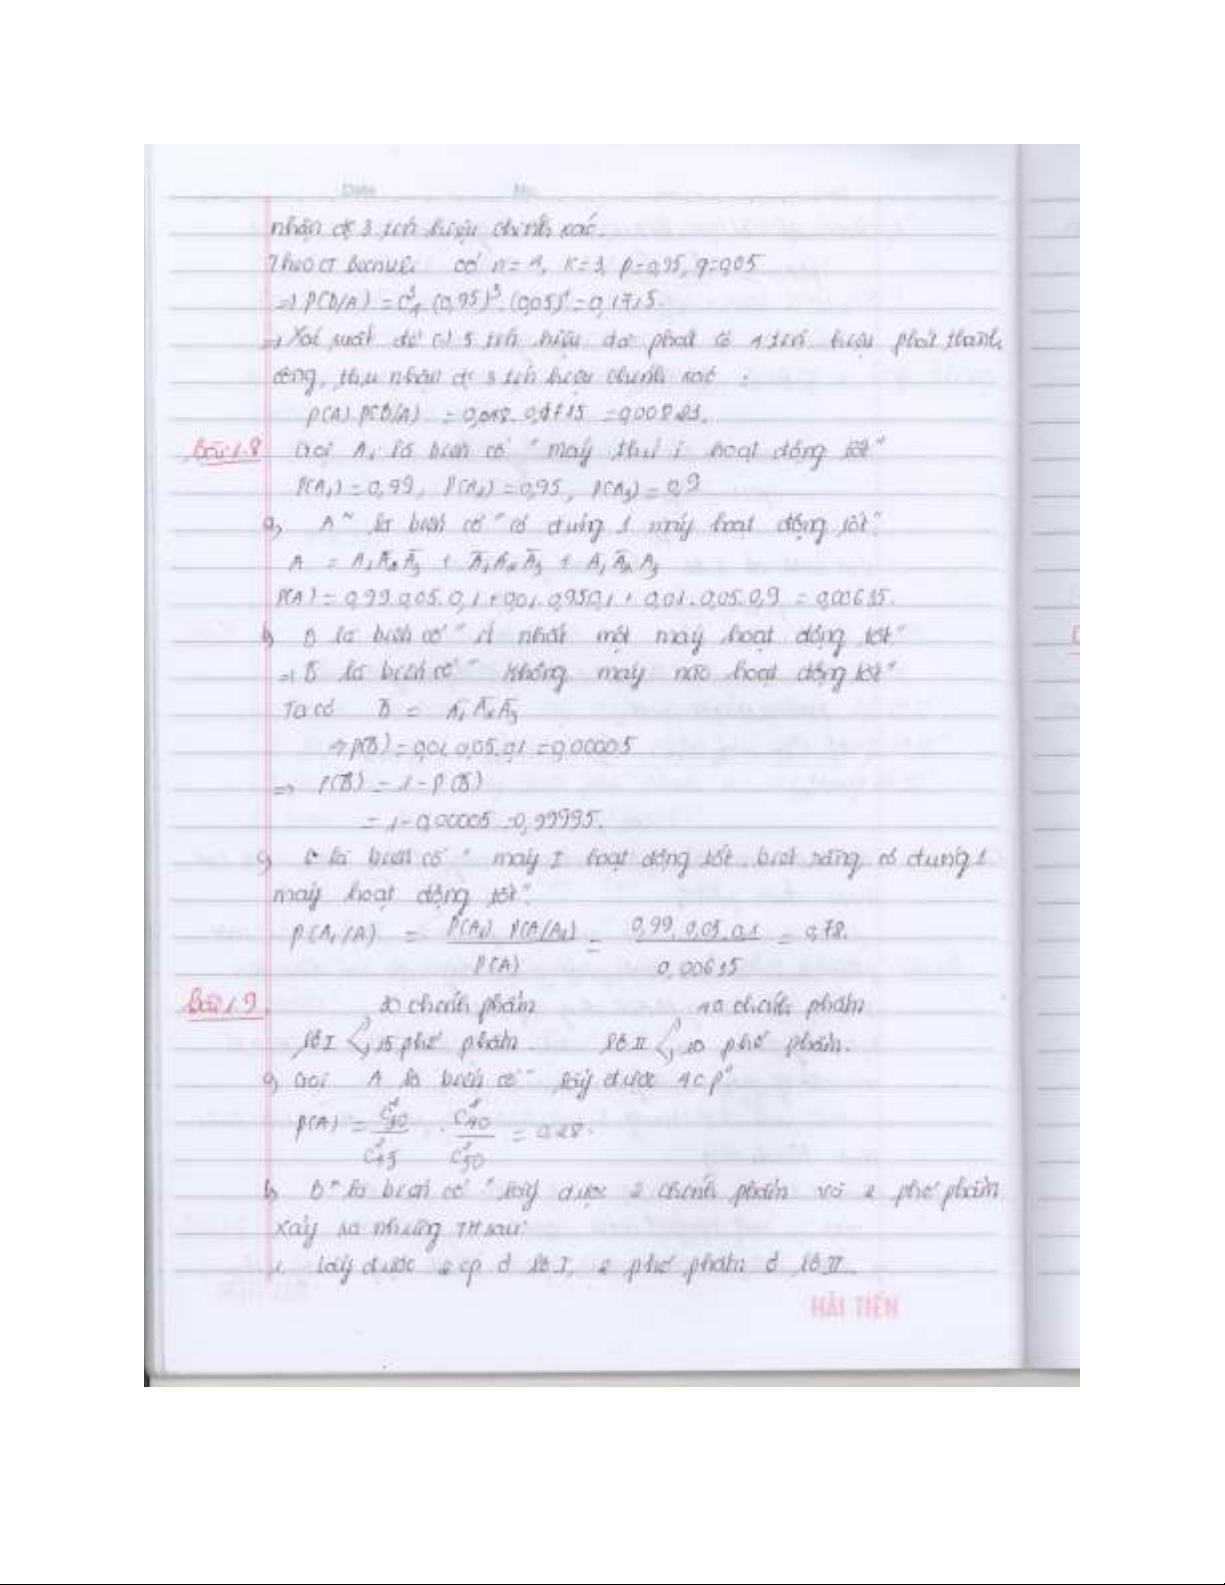 Date No.
nhận đc 3 tín hiệu chính xác.
Theo CT Becnuli có n=4, K=3, p=0,95, q=0,05
=> P(B/A) = C³₄ (0,95)³. (0,05)¹ = 0,1715.
=> Xác suất để có 5 tín hiệu đc phát có 4 tín hiệu phát thành
công, thu nhận đc 3 tín hiệu chính xác :
P(A).P(B/A) = 0,1715
Bài 1.8 Gọi Aᵢ là biến cố "máy thứ i hoạt động tốt"
P(A₁)=0,99, P(A₂)=0,95, P(A₃)=0,9
a, A" là biến cố "có đúng 1 máy hoạt động tốt".
A = A₁A̅₂A̅₃ + A̅₁A₂A̅₃ + A̅₁A̅₂A₃
P(A) = 0,99.0,05.0,1+0,01.0,95.0,1 + 0,01.0,05.0,9 = 0,00635.
b, B là biến cố "ít nhất một máy hoạt động tốt"
=> B̅ là biến cố "không máy nào hoạt động tốt"
Ta có B̅ = A̅₁A̅₂A̅₃
=> P(B̅) = 0,01.0,05.0,1 = 0,00005
=> P(B) = 1 - P(B̅)
= 1-0,00005=0,99995.
c, C là biến cố "máy I hoạt động tốt, biết rằng có đúng 1
máy hoạt động tốt".
P(A₁/A) = P(A₁).P(A/A₁) / P(A) = 0,99.0,05.0,1 / 0,00635 = 0,78.
Bài 1.9 30 chính phẩm 40 chính phẩm
lô I < 15 phế phẩm. lô II < 10 phế phẩm.
a, Gọi A là biến cố "lấy được 4 cp"
P(A) = C²₃₀ / C²₄₅ . C²₄₀ / C²₅₀ = 0,28.
b, B" là biến cố "lấy được 2 chính phẩm và 2 phế phẩm
Xảy ra những TH sau:
1. lấy được 2 cp ở lô I, 2 phế phẩm ở lô II.
HẢI TIẾN